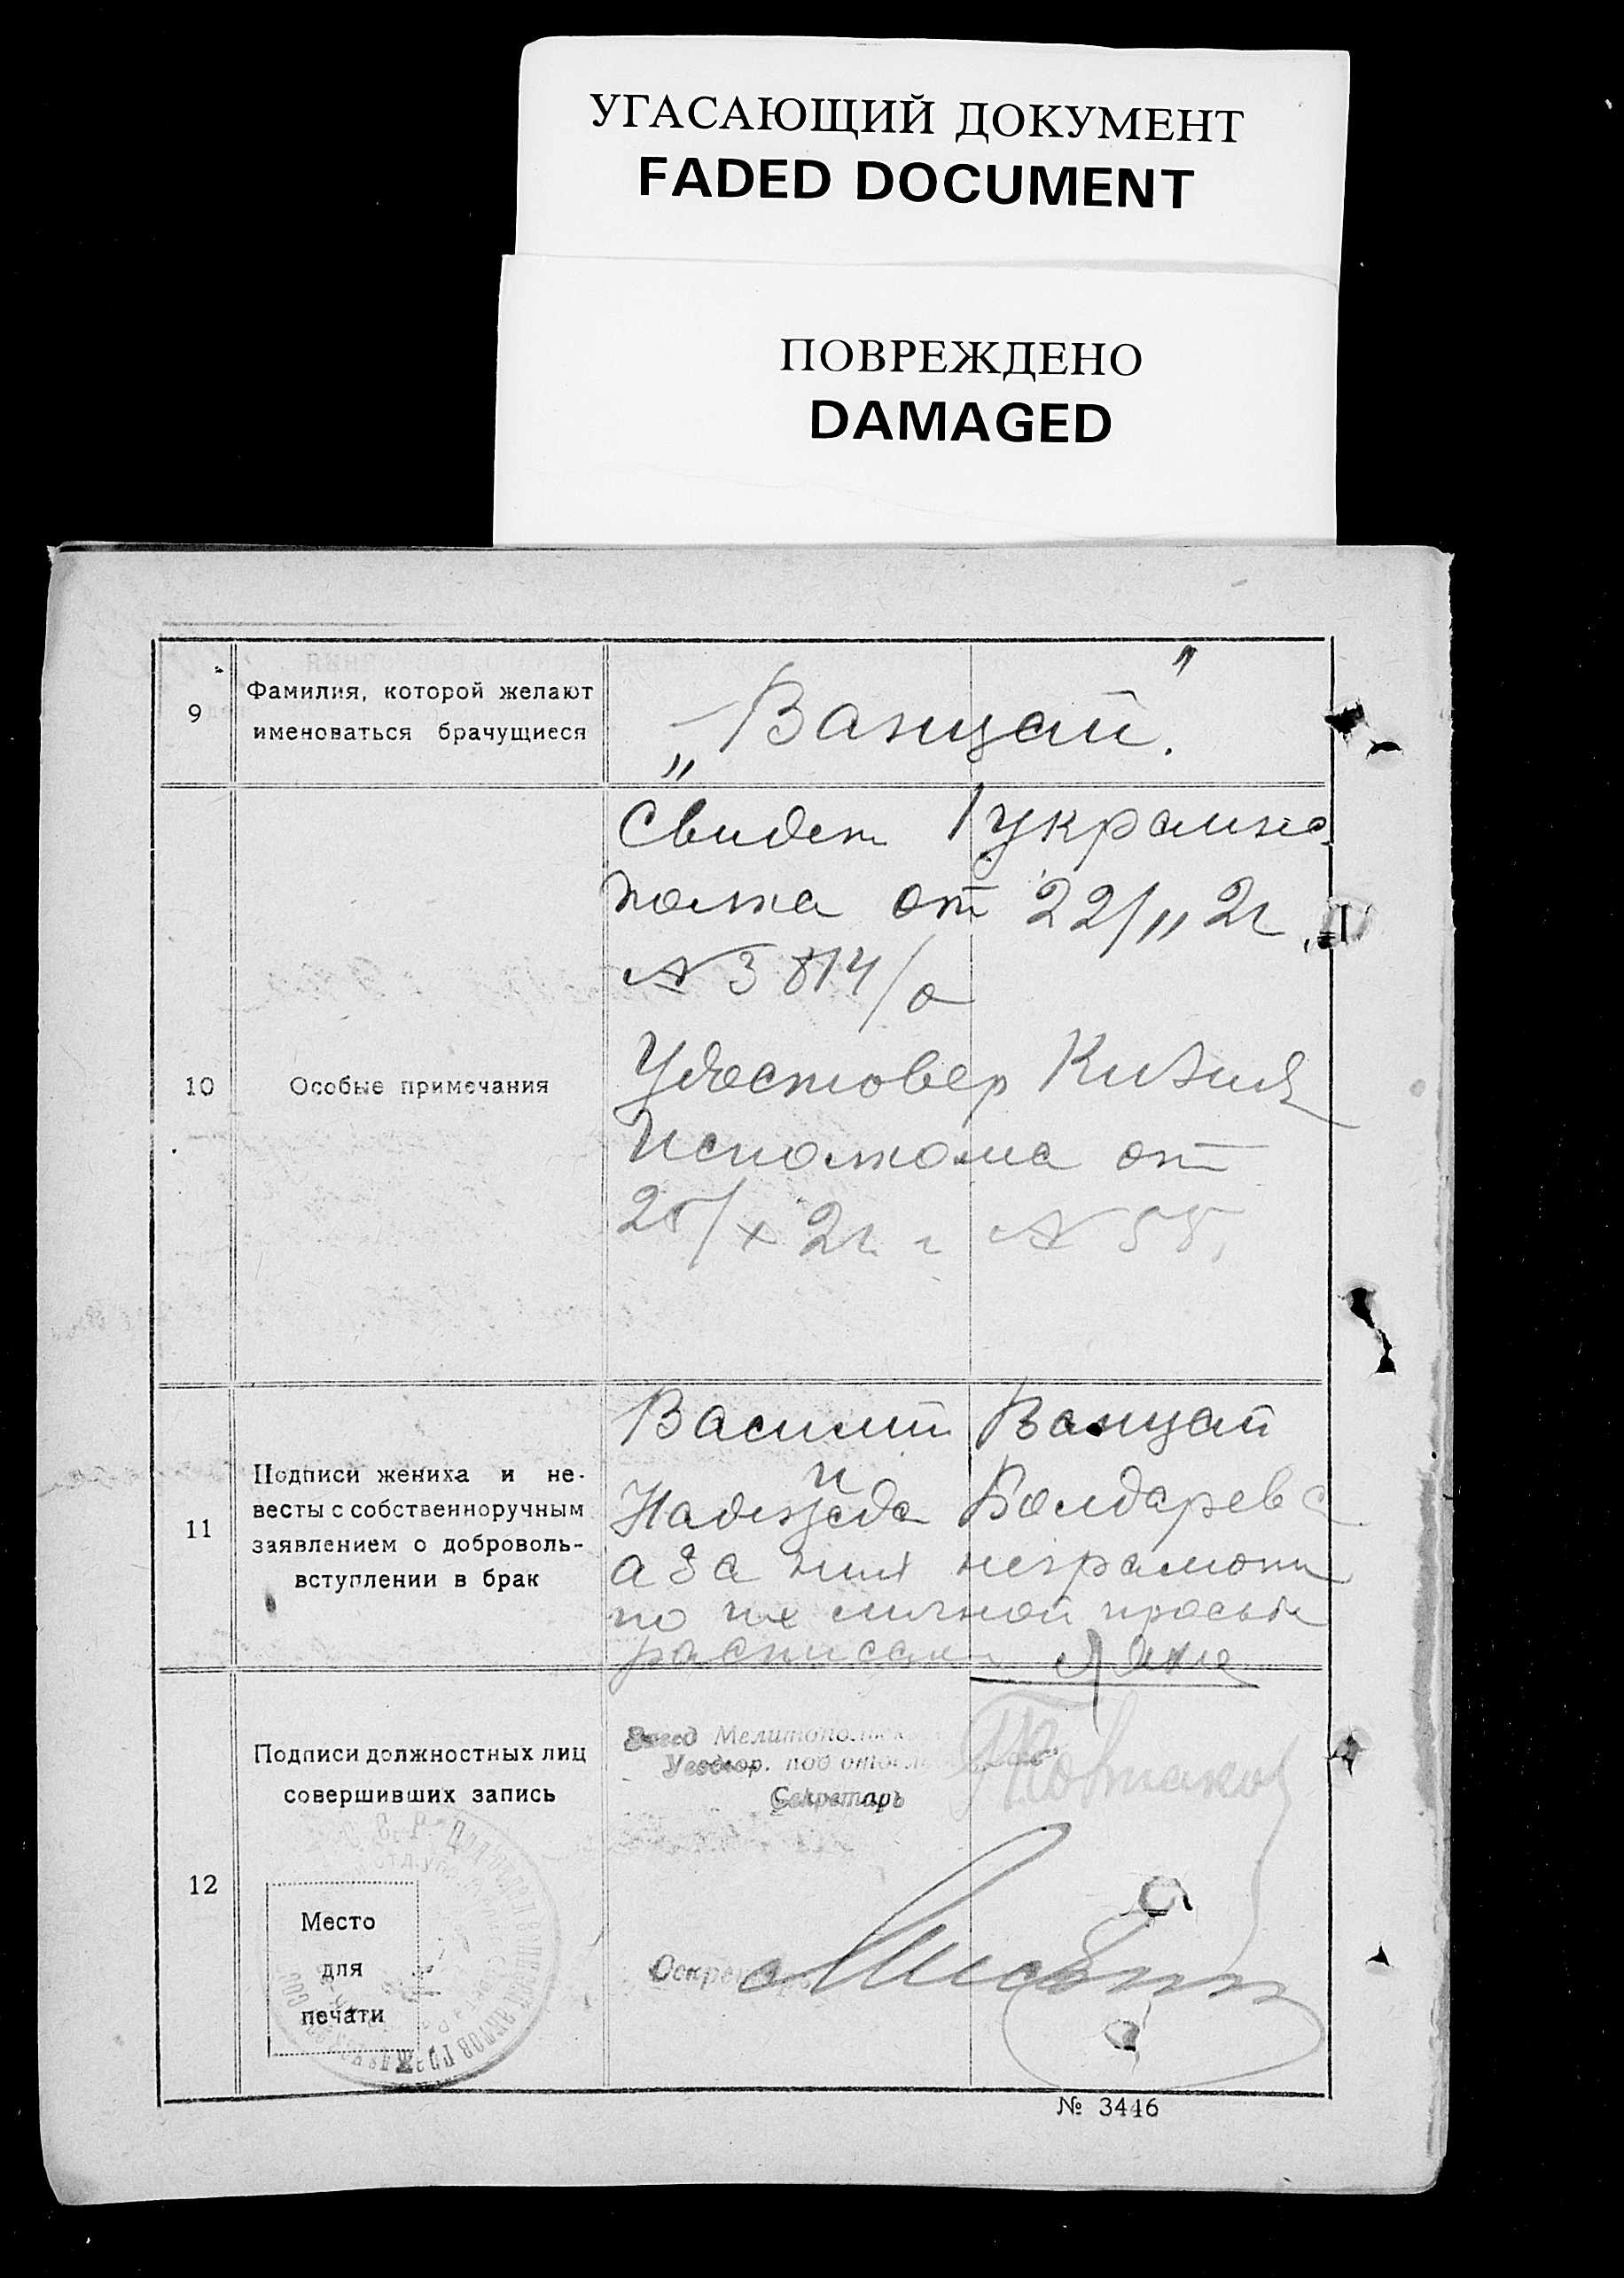 УГАСАЮЩИЙ ДОКУМЕНТ
FADED DOCUMENT
ПОВРЕЖДЕНО
DAMAGED
9
Фамилия, которой желают
именоваться брачущиеся
„Ванцай."
10
Особые примечания
Свидет 1 украинс
полка от 22/II 21
№ 3814/о
Удостовер Кизия
Исполкома от
25/X 21 г № 55,
11
Подписи жениха и не-
весты с собственноручным
заявлением о доброволь-
вступлении в брак
Василий Ванцай
и
Надежда Болдарева
а за них неграмотн
по их личной просьбе
расписался
12
Подписи должностных лиц
совершивших запись
Место
для
печати
Завед Мелитопольск
Уездгор. под отдел
Секретарь
№ 3446